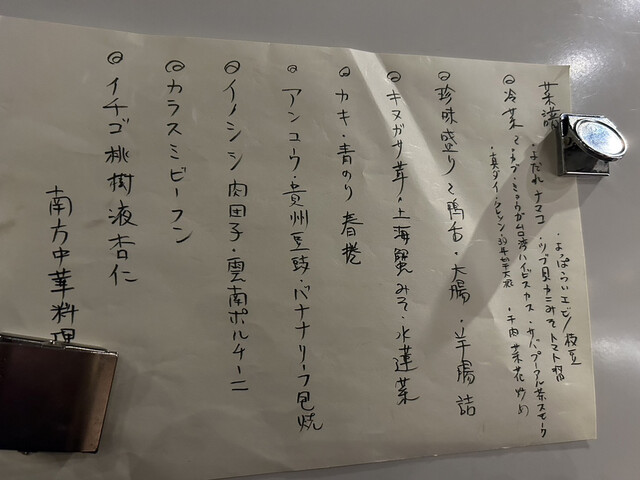 菜譜
・よっぱらいエビ/枝豆
・よだれナマコ ・ツブ貝カニみそトマト醤
◎冷菜 ・サバプーアル茶スモーク
・真ダイ ・干肉菜花炒め
◎珍味盛り 鴨舌・大腸・羊腸詰
◎キヌガサ茸・上海蟹みそ・水蓮菜
◎カキ・青のり春捲
◎アンコウ・貴州豆豉・バナナリーフ包焼
◎イノシシ肉団子・雲南ポルチーニ
◎カラスミビーフン
◎イチゴ桃樹液杏仁
南方中華料理